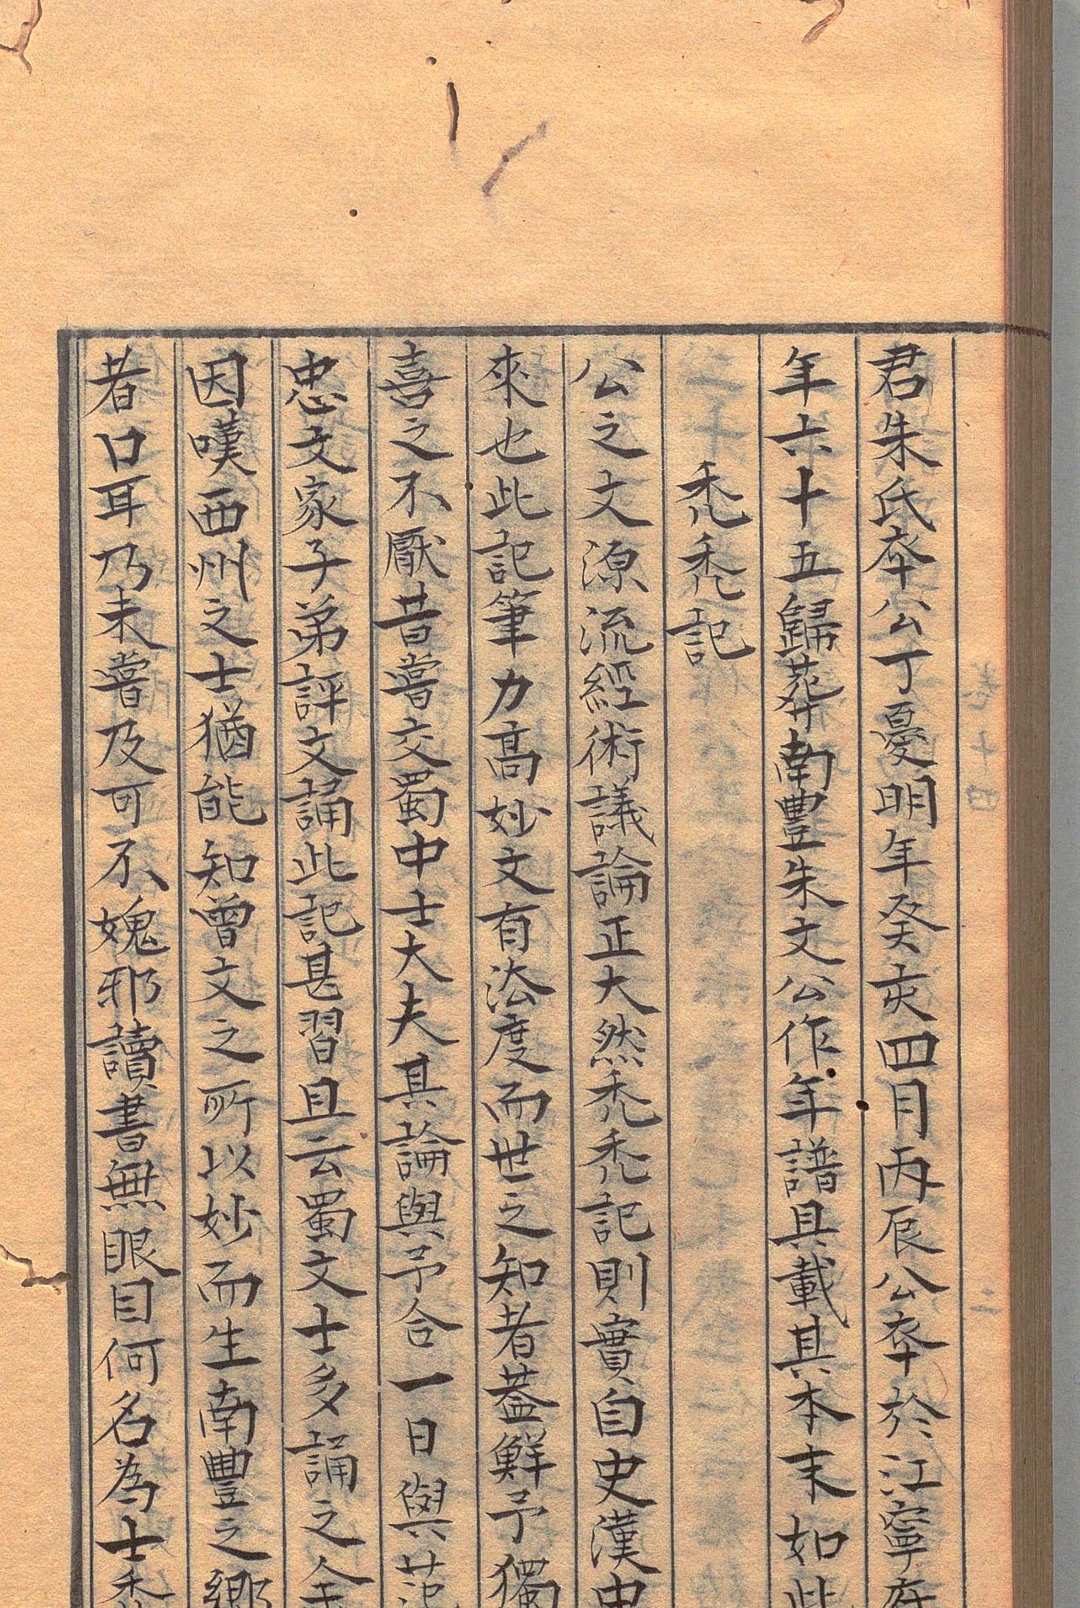 君朱氏卒公丁憂明年癸亥四月丙辰公卒於江寧府
年六十五歸葬南豐朱文公作年譜具載其本末如此
禿禿記
公之文源流經術議論正大然禿禿記則實自史漢中
來也此記筆力高妙文有法度而世之知者蓋鮮予獨
喜之不厭昔嘗交蜀中士大夫其論與予合一日與范
忠文家子弟評文誦此記甚習且云蜀文士多誦之余
因嘆西州之士猶能知曾文之所以妙而生南豐之鄉
者口耳乃未嘗及可不媿邪讀書無眼目何名為士